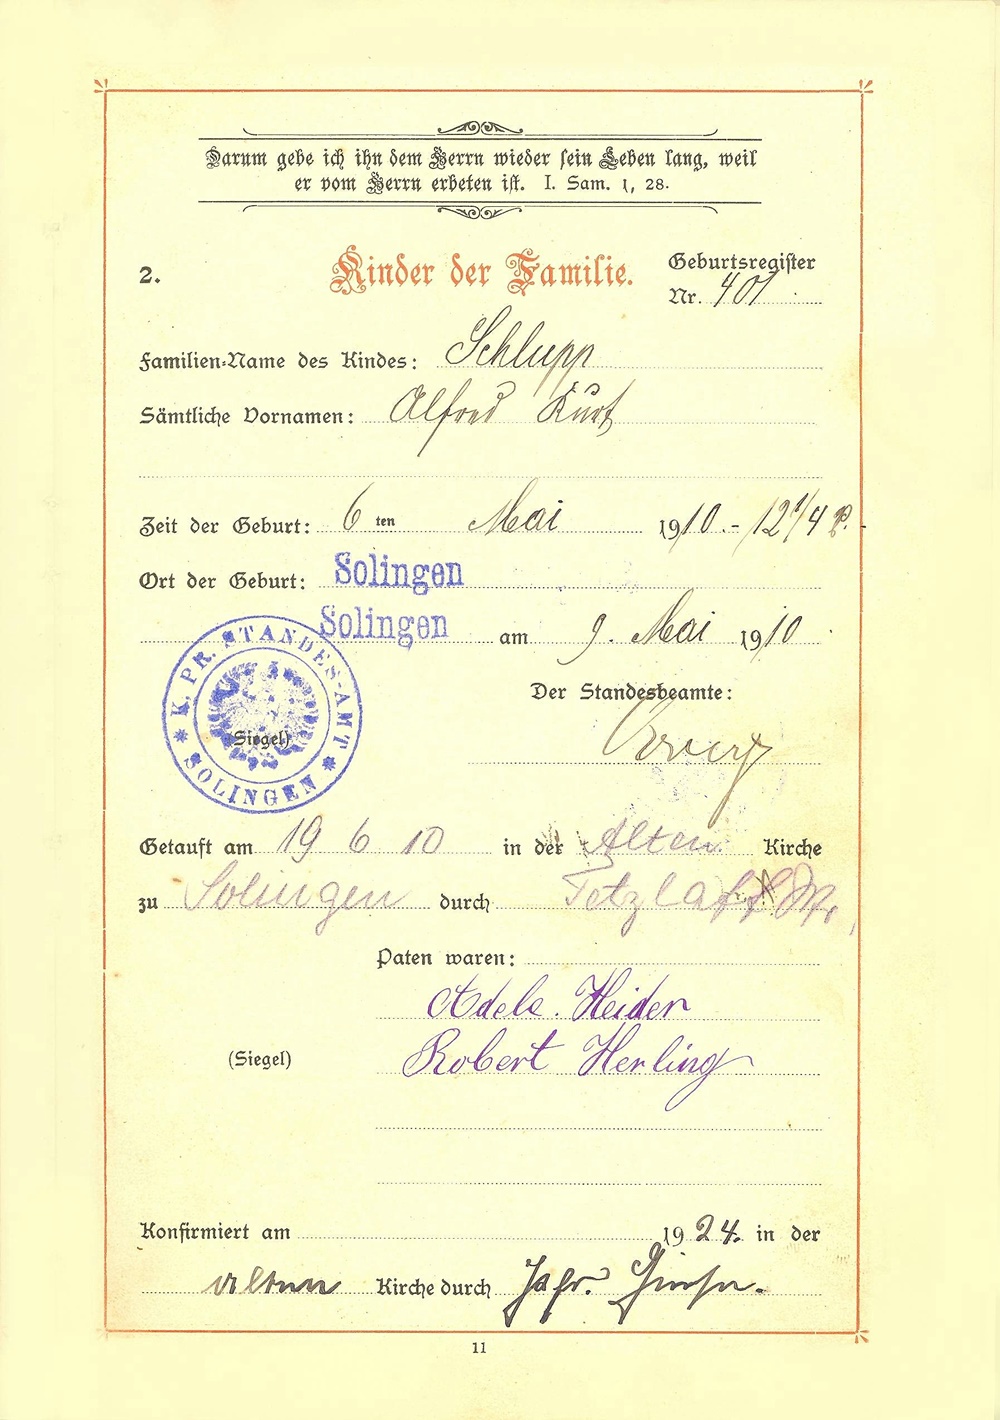 Darum gebe ich ihn dem Herrn wieder sein Leben lang, weil
er vom Herrn erbeten ist. I. Sam. 1, 28.
2.
Kinder der Familie.
Geburtsregister
Nr. 401
Familien-Name des Kindes: Schlupp
Sämtliche Vornamen: Alfred Kurt
Zeit der Geburt: 6 ten Mai 1910.- 12 1/4 p.
Ort der Geburt: Solingen
Solingen am 9. Mai 1910
K. PR. STANDES-AMT
SOLINGEN
(Siegel)
Der Standesbeamte:
Getauft am 19 6 10 in der Alten Kirche
zu Solingen durch Tetzlaff
Paten waren:
Adele Heider
Robert Herling
(Siegel)
Konfirmiert am 1924. in der
alten Kirche durch
11